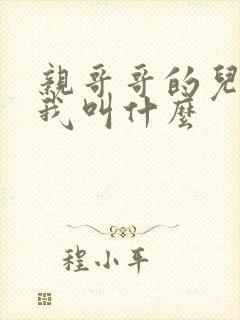 親哥哥的兒
我叫什麼
程小平